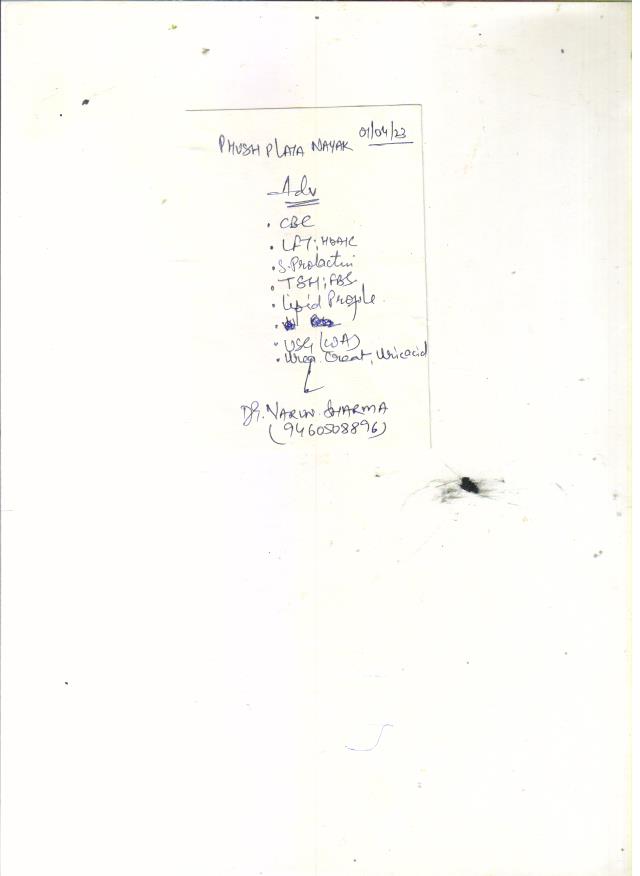 01/04/23
PHUSHPLATA NAYAK
Adv
• CBC
• LFT; HbA1C
• S. Prolactin
• TSH; FBS
• Lipid Profile
• USG (WA)
• Urea. Creat, Uricacid
DR. VARUN SHARMA
(9460508896)